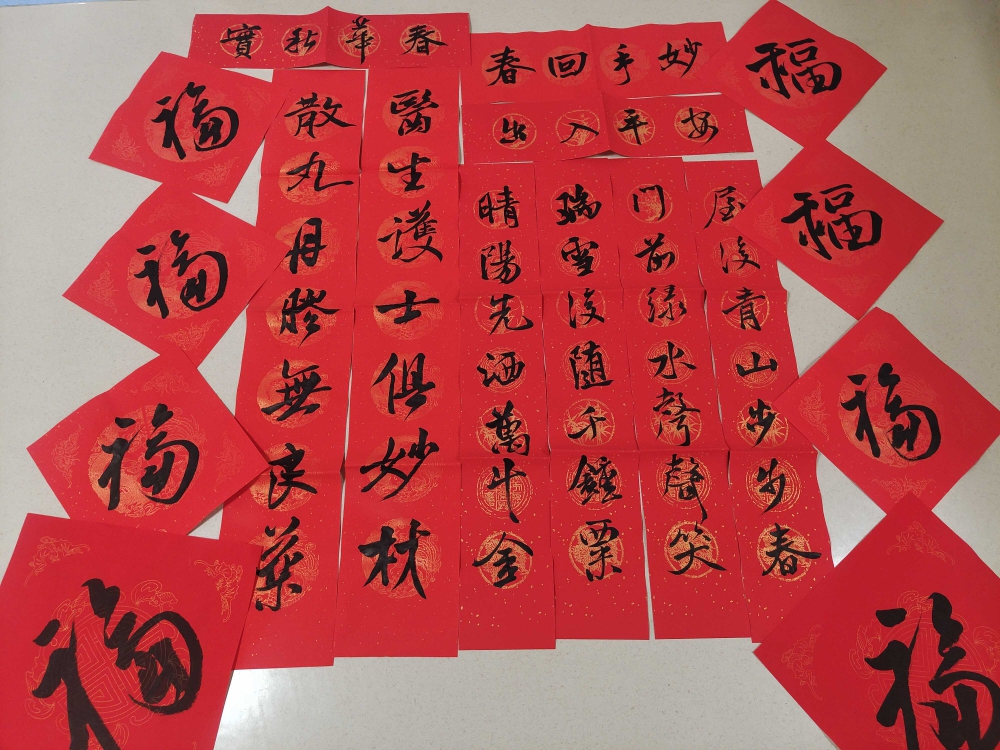 春華秋實
妙手回春
出入平安
醫生護士俱妙材
散丸丹膠無良藥
屋後青山步步春
门前绿水聲聲笑
瑞雪後随千鍾粟
晴陽先洒萬斗金
福
福
福
福
福
福
福
福